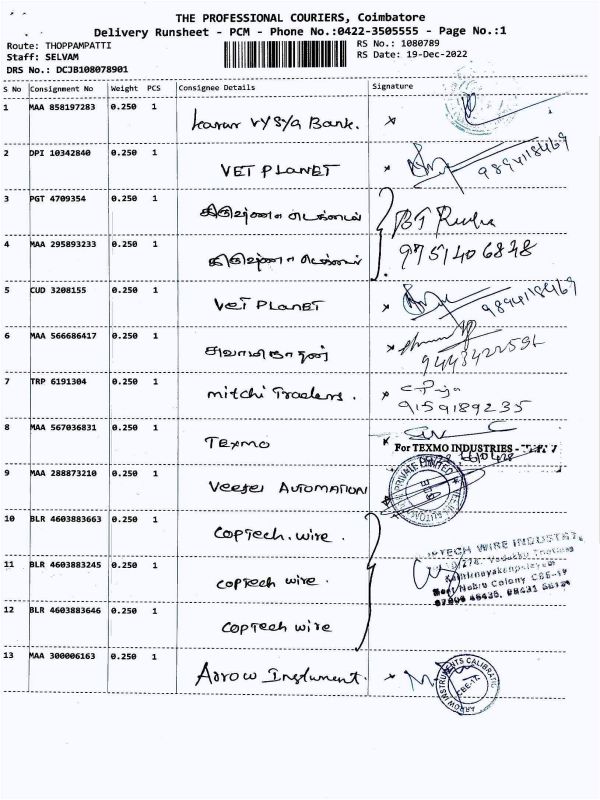 THE PROFESSIONAL COURIERS, Coimbatore
Delivery Runsheet - PCM - Phone No.:0422-3505555 - Page No.:1
Route: THOPPAMPATTI
RS No.: 1080789
Staff: SELVAM
RS Date: 19-Dec-2022
DRS No.: DCJB108078901
S No Consignment No Weight PCS Consignee Details Signature
1 MAA 858197283 0.250 1 karur VYSYA Bank.
2 DPI 10342840 0.250 1 VET PLANET 9894118469
3 PGT 4709354 0.250 1
4 MAA 295893233 0.250 1 9751406848
5 CUD 3208155 0.250 1 VET PLANET 9894118469
6 MAA 566686417 0.250 1 சுவாமிநாதன்
7 TRP 6191304 0.250 1 mitchi Traders. 9159189235
8 MAA 567036831 0.250 1 TEXMO
For TEXMO INDUSTRIES -
9 MAA 288873210 0.250 1 AUTOMATION
10 BLR 4603883663 0.250 1 COPTech. wire.
11 BLR 4603883245 0.250 1 COPTech wire.
12 BLR 4603883646 0.250 1 COPTech wire
13 MAA 300006163 0.250 1 Arrow Instrument.